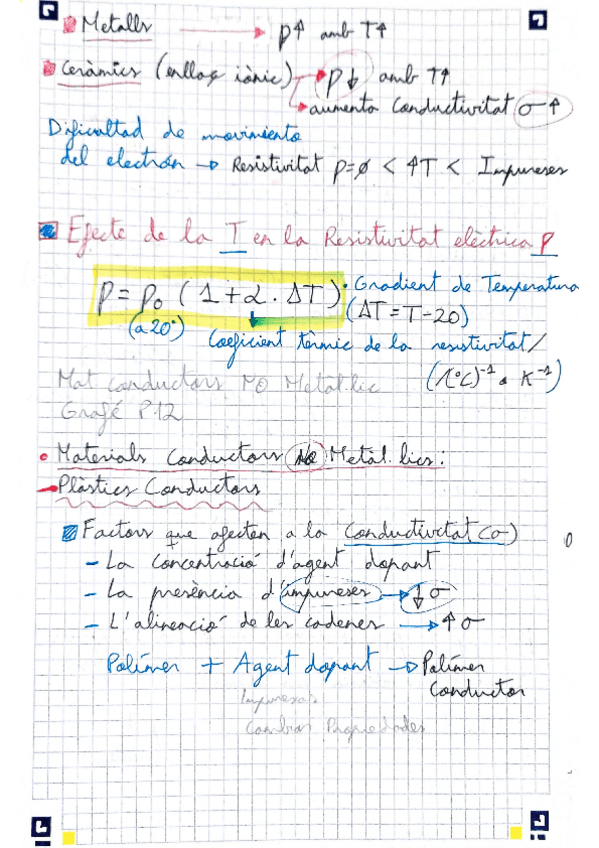 Metalls → ρ↑ amb T↑
Ceràmics (enllaç iònic) → ρ↓ amb T↑
→ aumenta Conductivitat σ↑
Dificultad de movimiento
del electrón → Resistivitat ρ=ø < ↑T < Impureses
Efecte de la T en la Resistivitat elèctrica ρ
ρ = ρ₀ (1 + α · ΔT) · Gradient de Temperatura
(a 20°) (ΔT = T-20)
Coeficient tèrmic de la resistivitat/
(1/°C)⁻¹ o K⁻¹)
Mat conductors NO Metàl·lic
Grafé P.12
• Materials Conductors No Metàl·lics:
→ Plàstics Conductors
Factors que afecten a la Conductivitat (σ)
- La Concentració d'agent dopant
- La presència d'impureses → ↓σ
- L'alineació de les cadenes → ↑σ
Polímer + Agent dopant → Polímer
Conductor
Impureses
Cambiar Propiedades